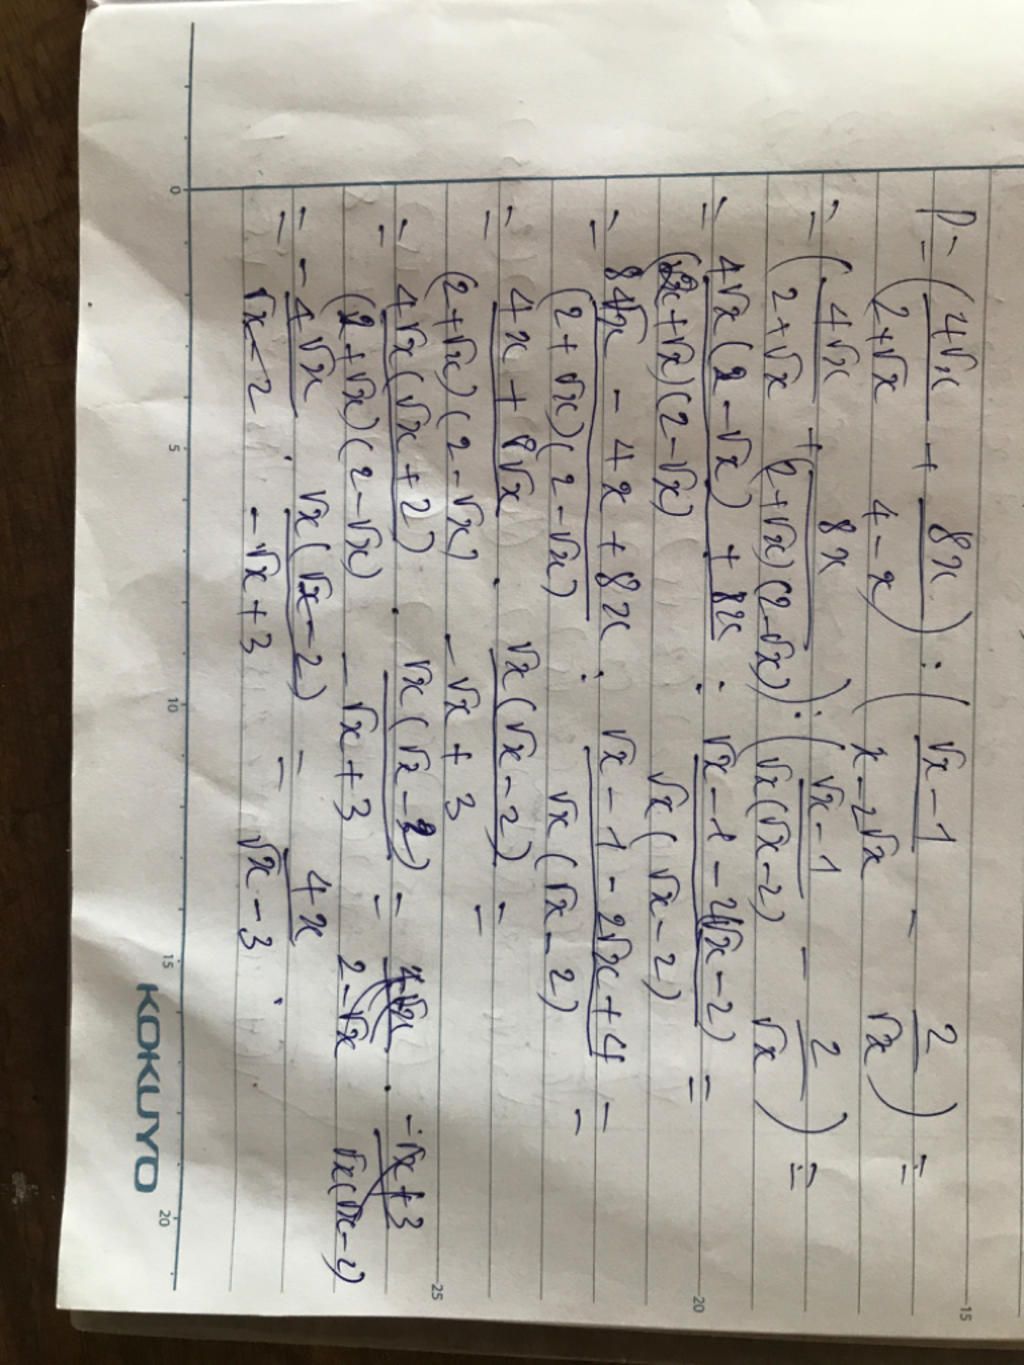 P = (4√x / 2+√x + 8x / 4-x) : (√x-1 / x-2√x - 2 / √x) =
= (4√x / 2+√x + 8x / (2+√x)(2-√x)) : (√x-1 / √x(√x-2) - 2 / √x) =
= 4√x(2-√x) + 8x / (2+√x)(2-√x) : √x-1-2(√x-2) / √x(√x-2) =
= 8√x - 4x + 8x / (2+√x)(2-√x) : √x-1-2√x+4 / √x(√x-2) =
= 4x + 8√x / (2+√x)(2-√x) . √x(√x-2) / -√x+3 =
= 4√x(√x+2) / (2+√x)(2-√x) . √x(√x-2) / -√x+3 = 4√x / 2-√x . -√x+3 / √x(√x-2)
= -4√x / √x-2 . √x(√x-2) / -√x+3 = 4x / √x-3 .
0
5
10
15
20
15
20
25
KOKUYO